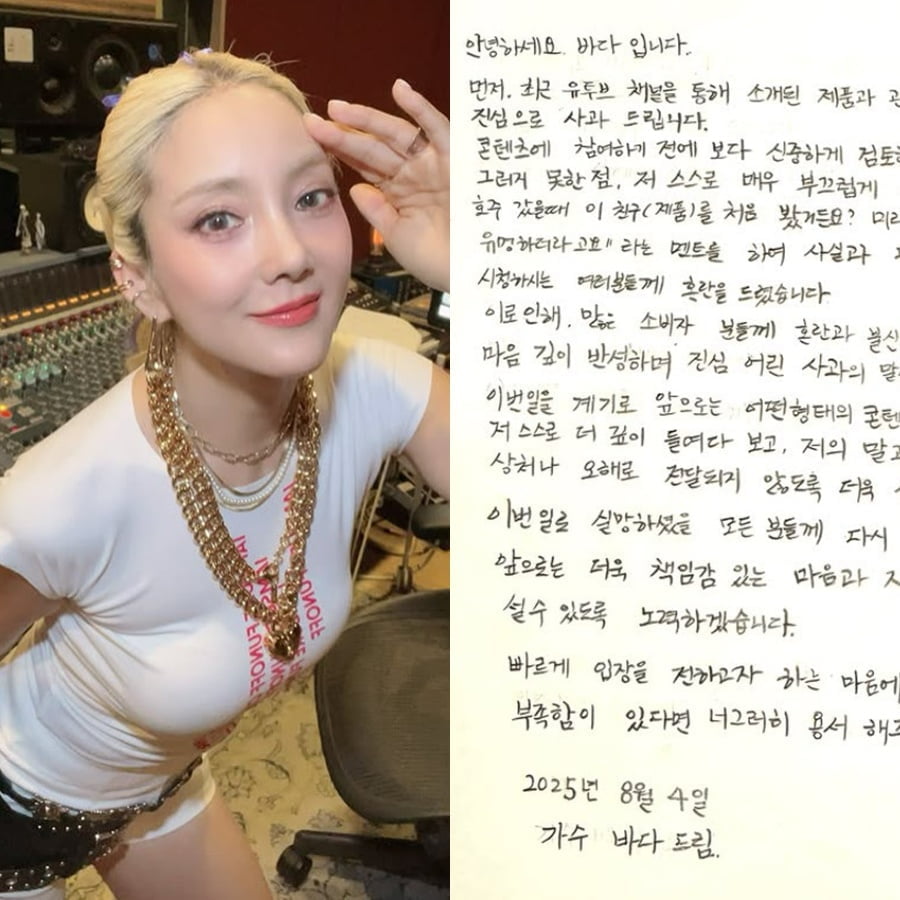 안녕하세요 바다 입니다.
먼저, 최근 유투브 채널을 통해 소개된 제품과
진심으로 사과 드립니다.
콘텐츠에 참여하기 전에 보다 신중하게
그러지 못한 점, 저 스스로 매우 부끄럽게
호주 갔을때 이 친구(제품)를 처음 봤거든요?
유명하더라고요" 라는 멘트를 하여 사실과
시청하시는 여러분들께 혼란을 드렸습니다.
이로인해, 많은 소비자 분들께 혼란과 불신
마음 깊이 반성하며 진심 어린 사과의
이번일을 계기로 앞으로는 어떤형태의
저 스스로 더 깊이 들여다 보고, 저의
상처나 오해로 전달되지 않도록 더욱
이번 일로 실망하셨을 모든 분들께 다시
앞으로는 더욱 책임감 있는 마음과
설 수 있도록 노력하겠습니다.
빠르게 입장을 전하고자 하는 마음에
부족함이 있다면 너그러히 용서
2025년 8월 4일
가수 바다 드림.